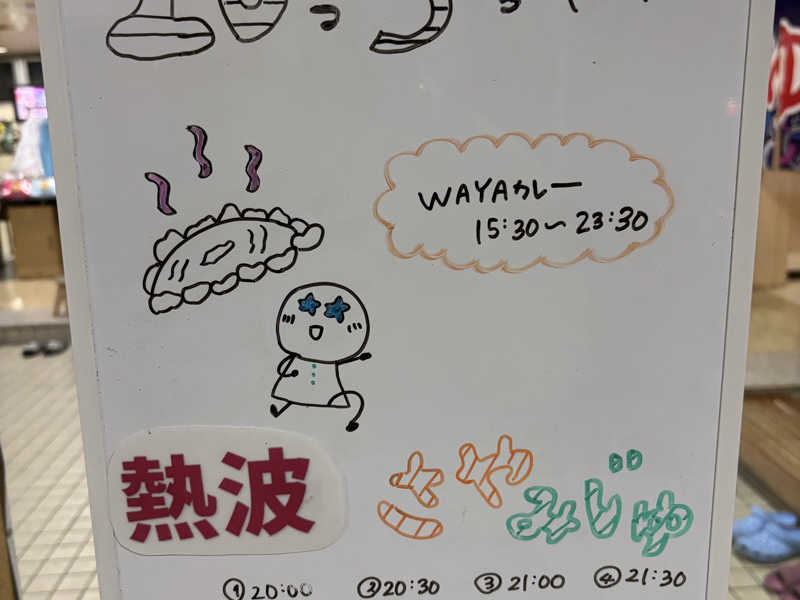 WAYAカレー
15:30〜23:30
熱波
さや
みじゅ
①20:00 ②20:30 ③21:00 ④21:30